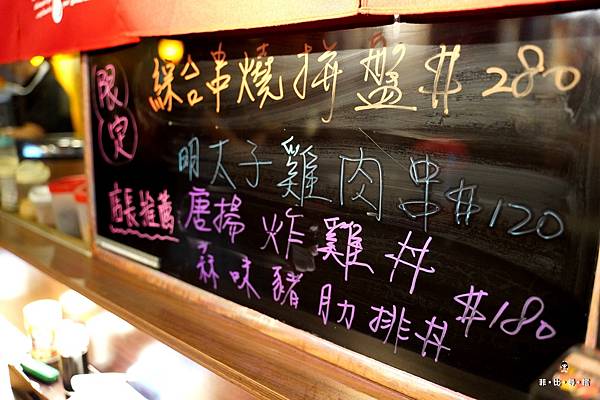 限定
綜合串燒拼盤 $280
明太子雞肉串 $120
店長推薦
唐揚炸雞丼
蒜味豬肋排丼 $180
菲·比·尋·獲